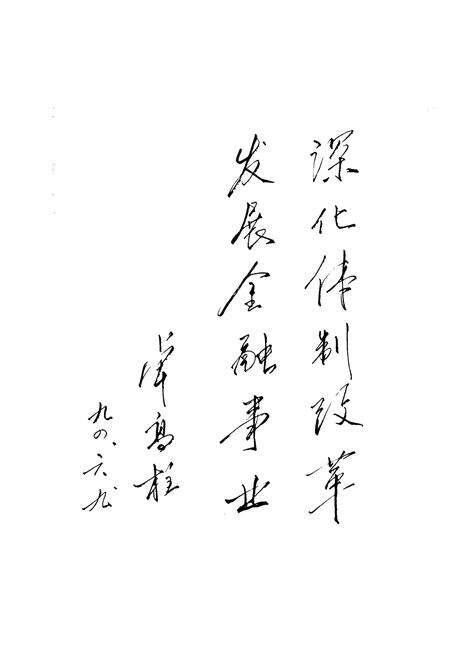 深化体制改革
发展金融事业
高柱
九四、六、九